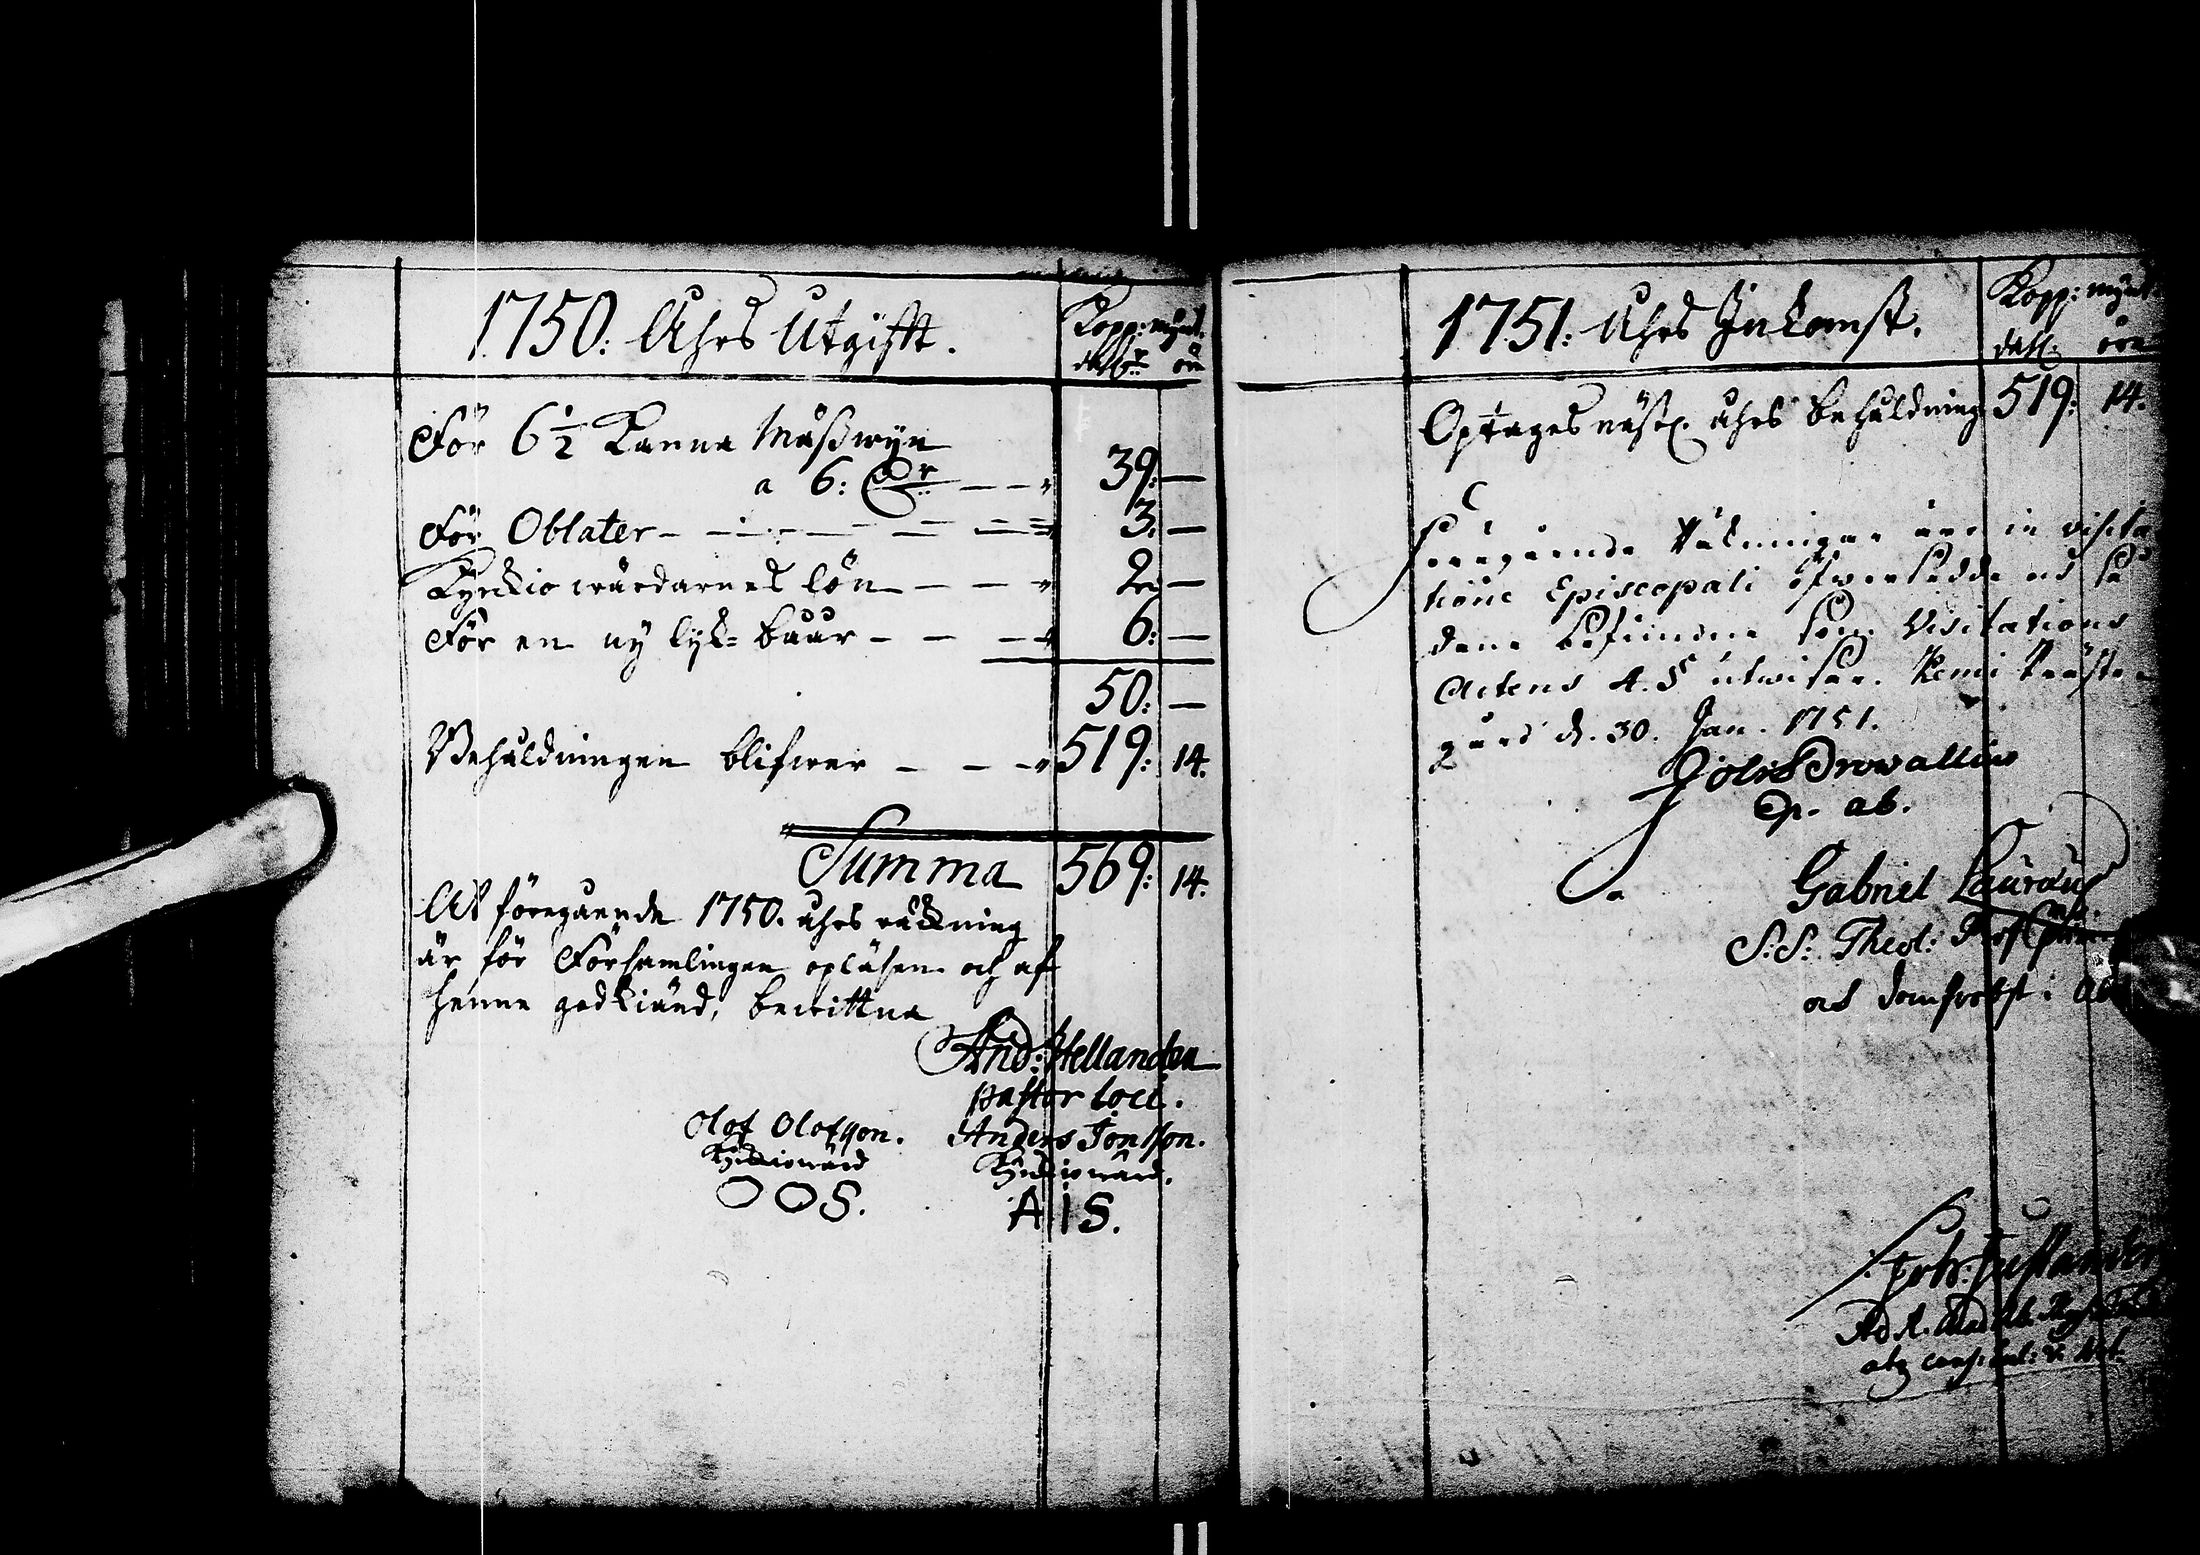 1750: Åhrs Utgifft.
Kopp: mynt.
dallr öre
För 6½ Kanna Mäßwyn
a 6: Dr — — " 39: —
För Oblater — — — — — — 3: —
Kyrckio wärdarnes lön — — " 2: —
För en ny lyk= båår — — — 6: —
50: —
Behåldningen blifwer — — — " 519: 14.
Summa 569: 14.
At föregående 1750. åhrs räckning
är för Församlingen opläsen och af
henne godkiänd, bewittna
And: Hellander
pastor loci.
Olof Olofson. Anders Jonsson.
Kyrckiowärd Kyrckiowärd.
OOS. AIS.
1751: Åhrs Inkomst.
Kopp: mynt
dall: öre
Optages näst. åhrs behåldning 519: 14.
Föregående Räkningar äro in visita
tione Episcopali öfwersedde och så
dane befundne som Visitations
Actens 4. § utwisar. Kemi Präste
gård d. 30. Jan. 1751.
Johs Browallius
Ep. ab.
Gabriel Lauræus
S:S: Theol: Prof
och domprobst i Åbo